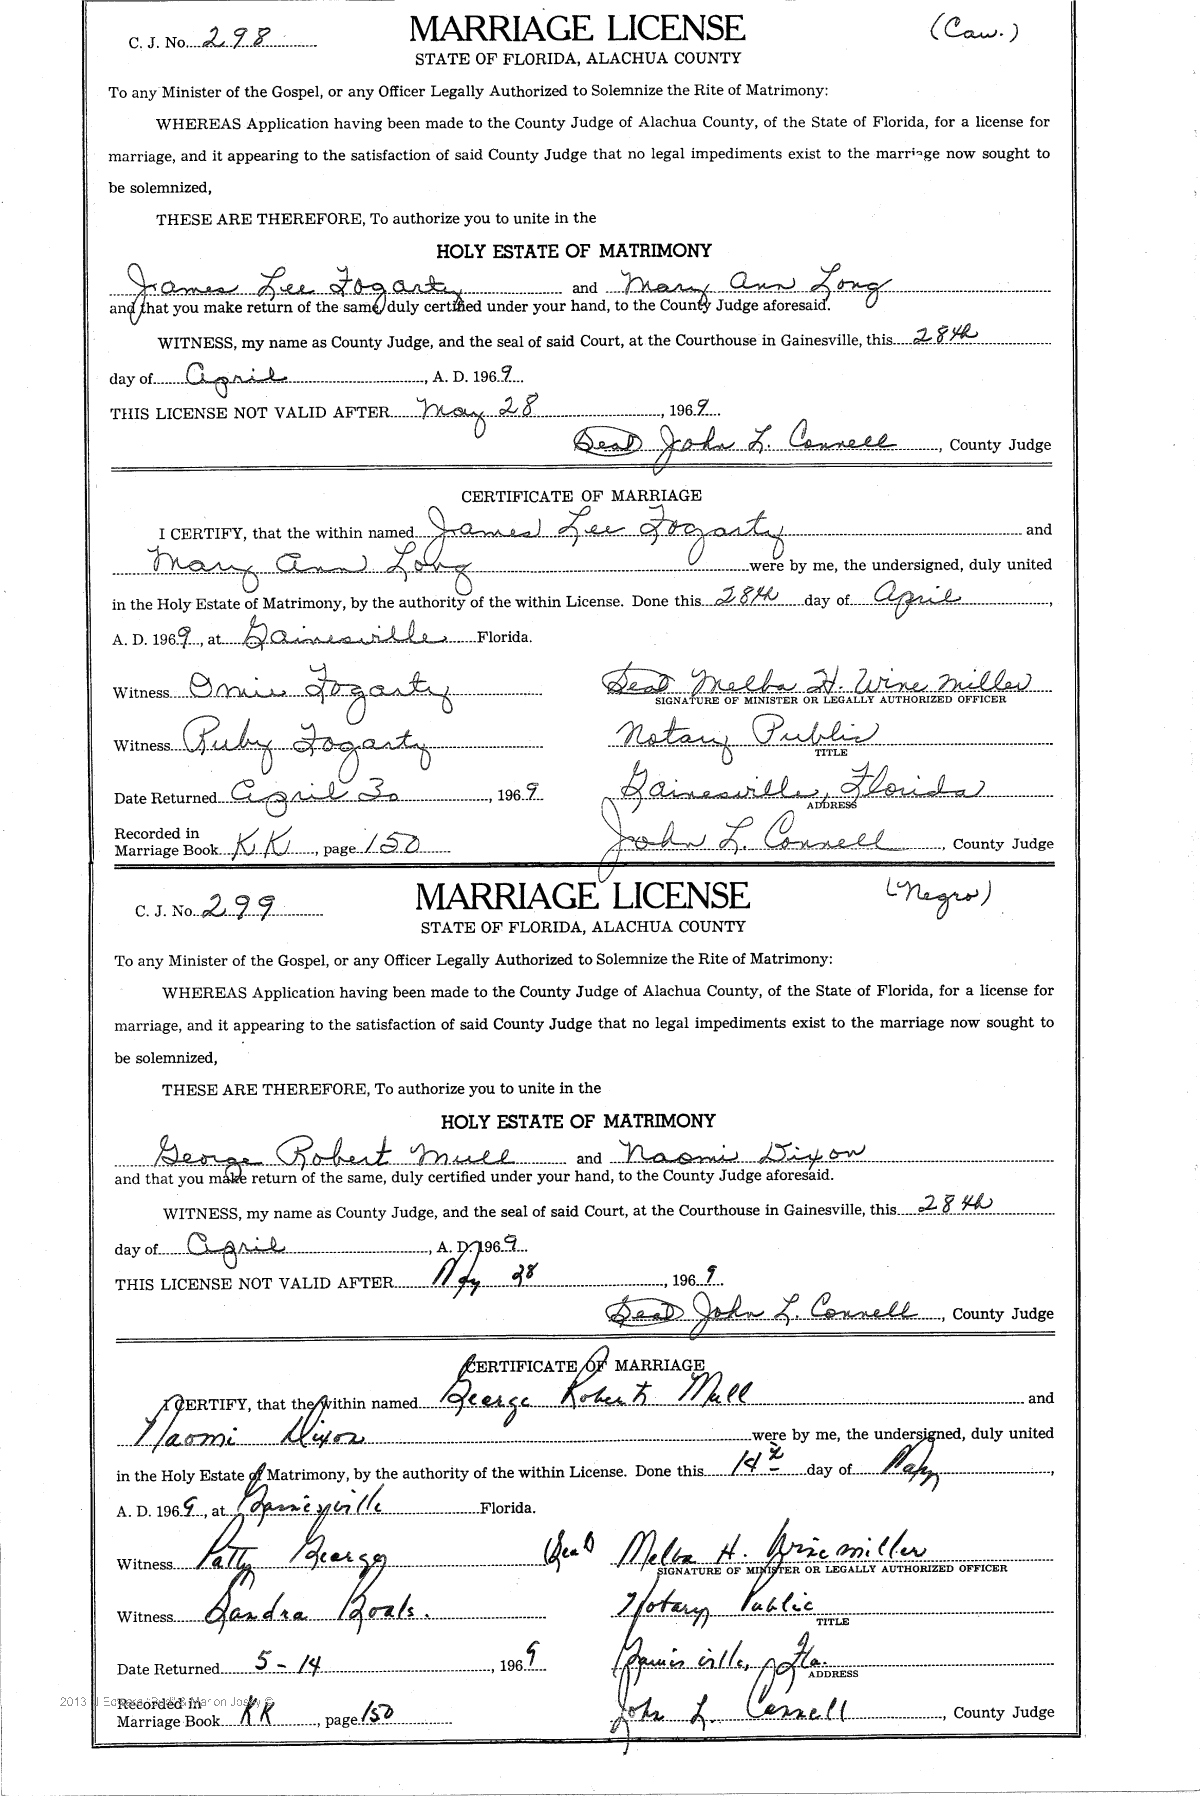 C. J. No. 298 MARRIAGE LICENSE (Cau.)
STATE OF FLORIDA, ALACHUA COUNTY
To any Minister of the Gospel, or any Officer Legally Authorized to Solemnize the Rite of Matrimony:
WHEREAS Application having been made to the County Judge of Alachua County, of the State of Florida, for a license for
marriage, and it appearing to the satisfaction of said County Judge that no legal impediments exist to the marriage now sought to
be solemnized,
THESE ARE THEREFORE, To authorize you to unite in the
HOLY ESTATE OF MATRIMONY
James Lee Fogarty and Mary Ann Long
and that you make return of the same, duly certified under your hand, to the County Judge aforesaid.
WITNESS, my name as County Judge, and the seal of said Court, at the Courthouse in Gainesville, this 28th
day of April, A. D. 1969
THIS LICENSE NOT VALID AFTER May 28, 1969
Seal John L. Connell, County Judge
CERTIFICATE OF MARRIAGE
I CERTIFY, that the within named James Lee Fogarty and
Mary Ann Long were by me, the undersigned, duly united
in the Holy Estate of Matrimony, by the authority of the within License. Done this 28th day of April,
A. D. 1969, at Gainesville Florida.
Witness Omie Fogarty Seal Melba H. Winemiller
SIGNATURE OF MINISTER OR LEGALLY AUTHORIZED OFFICER
Witness Ruby Fogarty Notary Public
TITLE
Date Returned April 30, 1969 Gainesville, Florida
ADDRESS
Recorded in
Marriage Book KK, page 150 John L. Connell, County Judge
C. J. No. 299 MARRIAGE LICENSE (Negro)
STATE OF FLORIDA, ALACHUA COUNTY
To any Minister of the Gospel, or any Officer Legally Authorized to Solemnize the Rite of Matrimony:
WHEREAS Application having been made to the County Judge of Alachua County, of the State of Florida, for a license for
marriage, and it appearing to the satisfaction of said County Judge that no legal impediments exist to the marriage now sought to
be solemnized,
THESE ARE THEREFORE, To authorize you to unite in the
HOLY ESTATE OF MATRIMONY
George Robert Mull and Naomi Dixon
and that you make return of the same, duly certified under your hand, to the County Judge aforesaid.
WITNESS, my name as County Judge, and the seal of said Court, at the Courthouse in Gainesville, this 28th
day of April, A. D. 1969
THIS LICENSE NOT VALID AFTER May 28, 1969
Seal John L. Connell, County Judge
CERTIFICATE OF MARRIAGE
I CERTIFY, that the within named George Robert Mull and
Naomi Dixon were by me, the undersigned, duly united
in the Holy Estate of Matrimony, by the authority of the within License. Done this 14th day of May,
A. D. 1969, at Gainesville Florida.
Witness Patty George (Seal) Melba H. Winemiller
SIGNATURE OF MINISTER OR LEGALLY AUTHORIZED OFFICER
Witness Sandra Boals. Notary Public
TITLE
Date Returned 5-14, 1969 Gainesville, Fla.
ADDRESS
2013
Recorded in
Marriage Book KK, page 150 John L. Connell, County Judge